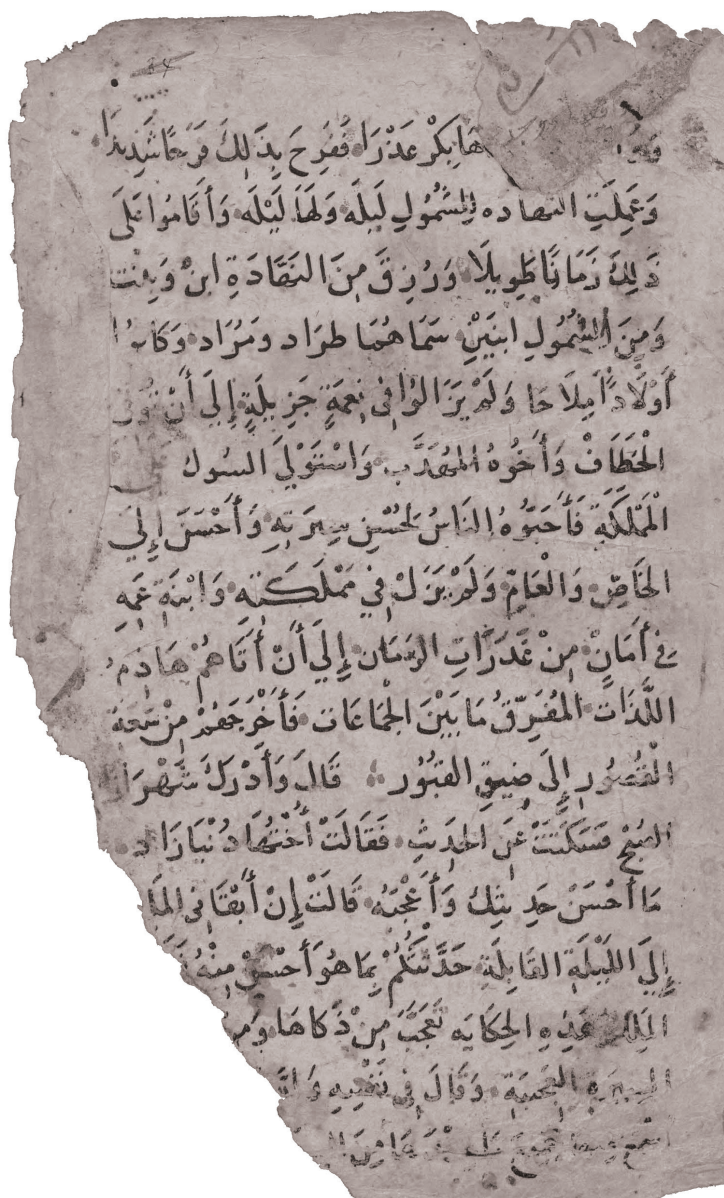 هَا بِكْر عَذْرَا فَفَرِحَ بِذَلِكَ فَرَحًا شَدِيدًا
وَعَمِلَتِ النقاده لِلشَّمُولِ لَيْلَه وَلَهَا لَيْلَه وَأَقَامُوا عَلَى
ذَلِكَ زَمَانًا طَوِيلًا وَرُزِقَ مِنَ النَقَّادَةِ ابنْ وَبِنْت
وَمِنَ الشَّمُولِ ابنَيْنِ سَمَاهُمَا طرَاد ومَرَاد وَكَانُوا
أَوْلَادًا مِلَاحَا وَلَمْ يَزَالُوا فِى نِعمَةٍ جَزِيلَةٍ إِلَى أَنْ تُوُفِى
الْخَطَّافْ وَأَخُوهُ المهَذَّب وَاسْتَوْلَى السُول
الْمَمْلَكَةِ فَأَحَبُّوهُ النَاسُ لِحُسْنِ سِيرَتِهِ وَأَحْسَنَ إِلَى
الخَاصِّ وَالْعَامِّ وَلَمْ يَزَلْ فِي مَمْلَكَتِهِ وَابْنَةِ عَمِهِ
فِي أَمَانٍ مِنْ غَدَرَاتِ الزمَان إِلَى أَنْ أَتَاهُمْ هَادِمُ
اللَّذَاتِ المُفَرِّقُ مَا بَيْنَ الْجَمَاعَات فَأَخْرَجَهُمْ مِنْ سَعَةِ
الْقُصُورِ إِلَى ضِيقِ القبُور قَالَ وَأَدْرَكَ شَهْرَ
الصُبْح فَسَكَتَتْ عَنِ الحَدِيثِ فَقَالَتْ أُخْتُهَا دُنْيَازَاد
مَا أَحْسَنْ حَدِيثِكْ وَأَعْجَبَهُ قَالَتْ إِنْ أَبْقَانِى
إِلَى اللَّيْلَةِ القَابِلَةِ حَدَّثْتُكُمْ بِمَا هُوَ أَحْسَنْ مِنْهُ
هَذِهِ الحِكَايَه تَعَجَّبَ مِنْ ذَكَاهَا
السِيرَةِ العَجِيبَةِ وَقَالَ فِى نَفْسِهِ